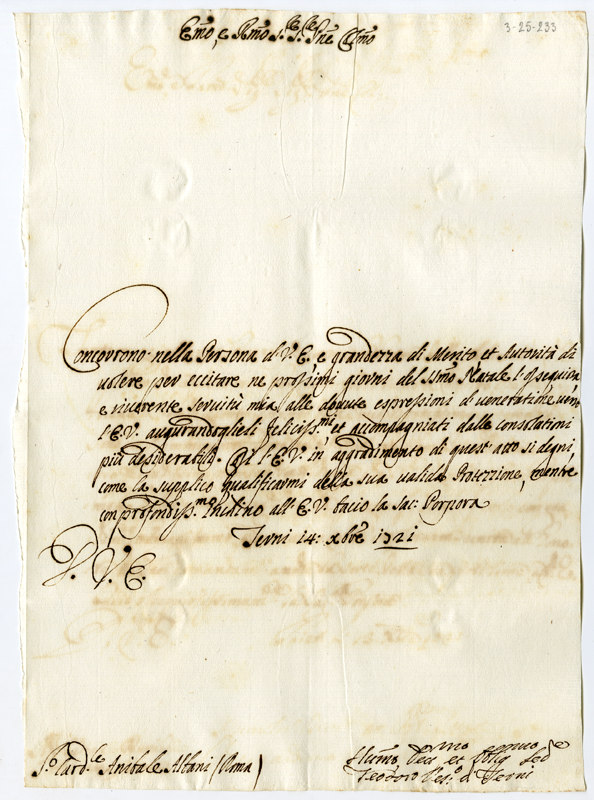 3-25-233
Emo, e Rmo Sre Sre Pne Clmo
Concorrono nella Persona di V. E. e grandezza di Merito, et Autorità di
volere per eccitare ne prossimi giorni del SSmo Natale l'ossequiosa,
e riverente servitù mia alle dovute espressioni di veneratione verso
l'E. V. augurandoglieli feliciss.mi et accompagniati dalle consolationi
più desiderabili. Et l'E. V. in aggradimento di quest'atto si degni,
come la supplico qualificarmi della sua valida Protezzione, mentre
con profondiss.mo Inchino all'E. V. bacio la Sac. Porpora
Terni 14: Xbre 1721
D. V. E.
S.r Card.le Anibale Albani (Roma)
Humo, Devmo et Obligmo Sedre
Teodoro Ves.o di Terni